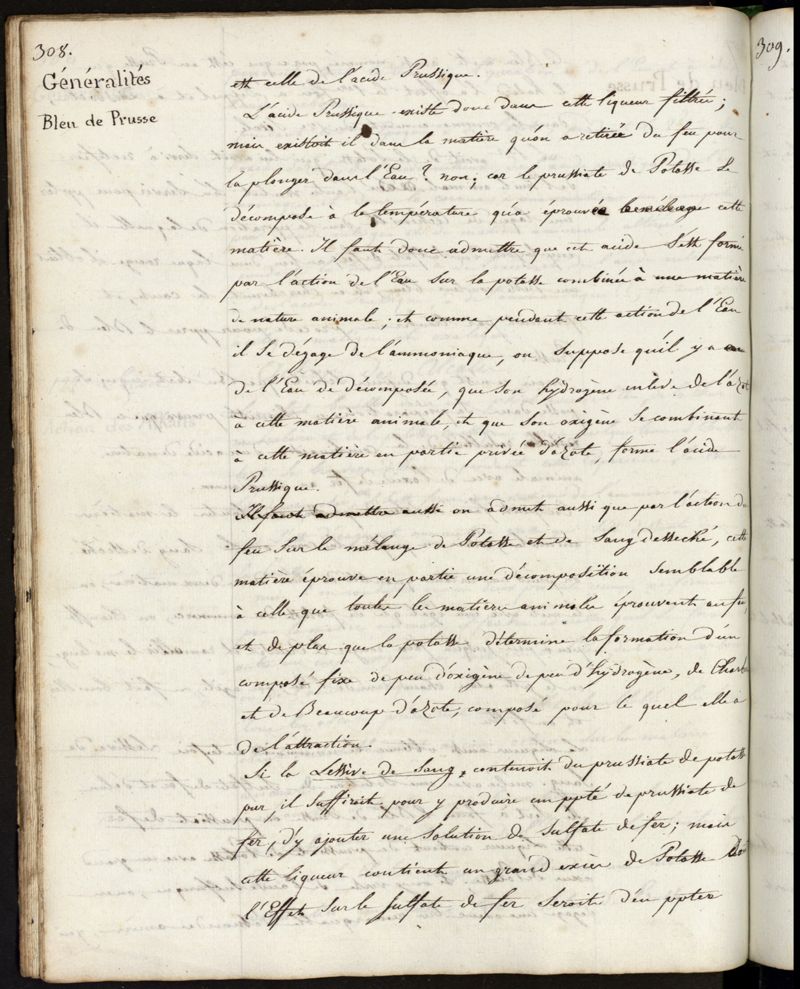 308.
Générálités
Bleu de Prusse
est celle de l'acide Prussique.
L'acide Prussique existe donc dans cette liqueur filtrée;
mais existoit il dans la matière qu'on a retirée du feu pour
la plonger dans l'Eau? non; car le prussiate de Potasse se
décompose à la température qu'a éprouvée le mélange cette
matière. Il faut donc admettre que cet acide s'est formé
par l'action de l'Eau sur la potasse combinée à une matière
de nature animale; et comme pendant cette action de l'Eau
il se dégage de l'ammoniaque, on suppose qu'il y a eu
de l'Eau de décomposée, que son hydrogène enlève de l'azot
à cette matière animale, et que son oxigène se combinant
à cette matière en partie privée d'azote, forme l'acide
Prussique.
Il faut admettre aussi on admet aussi que par l'action du
feu sur le mélange de Potasse et de Sang desseché, cette
matière éprouve en partie une décomposition semblable
à celle que toutes les matières animales éprouvent au feu,
et de plus que la potasse détermine la formation d'un
composé fixe de peu d'oxigène de peu d'hydrogène, de Charb
et de Beaucoup d'azote, composé pour le quel elle a
de l'attraction.
Si la Lessive de Sang, contenoit du prussiate de potasse
pur il suffiroit pour y produire un ppté de prussiate de
fer, d'y ajouter une solution de sulfate de fer; mais
cette liqueur contient un grand excès de Potasse dont
l'Effet sur le sulfate de fer seroit d'en ppter
309.
Bleu de Prusse